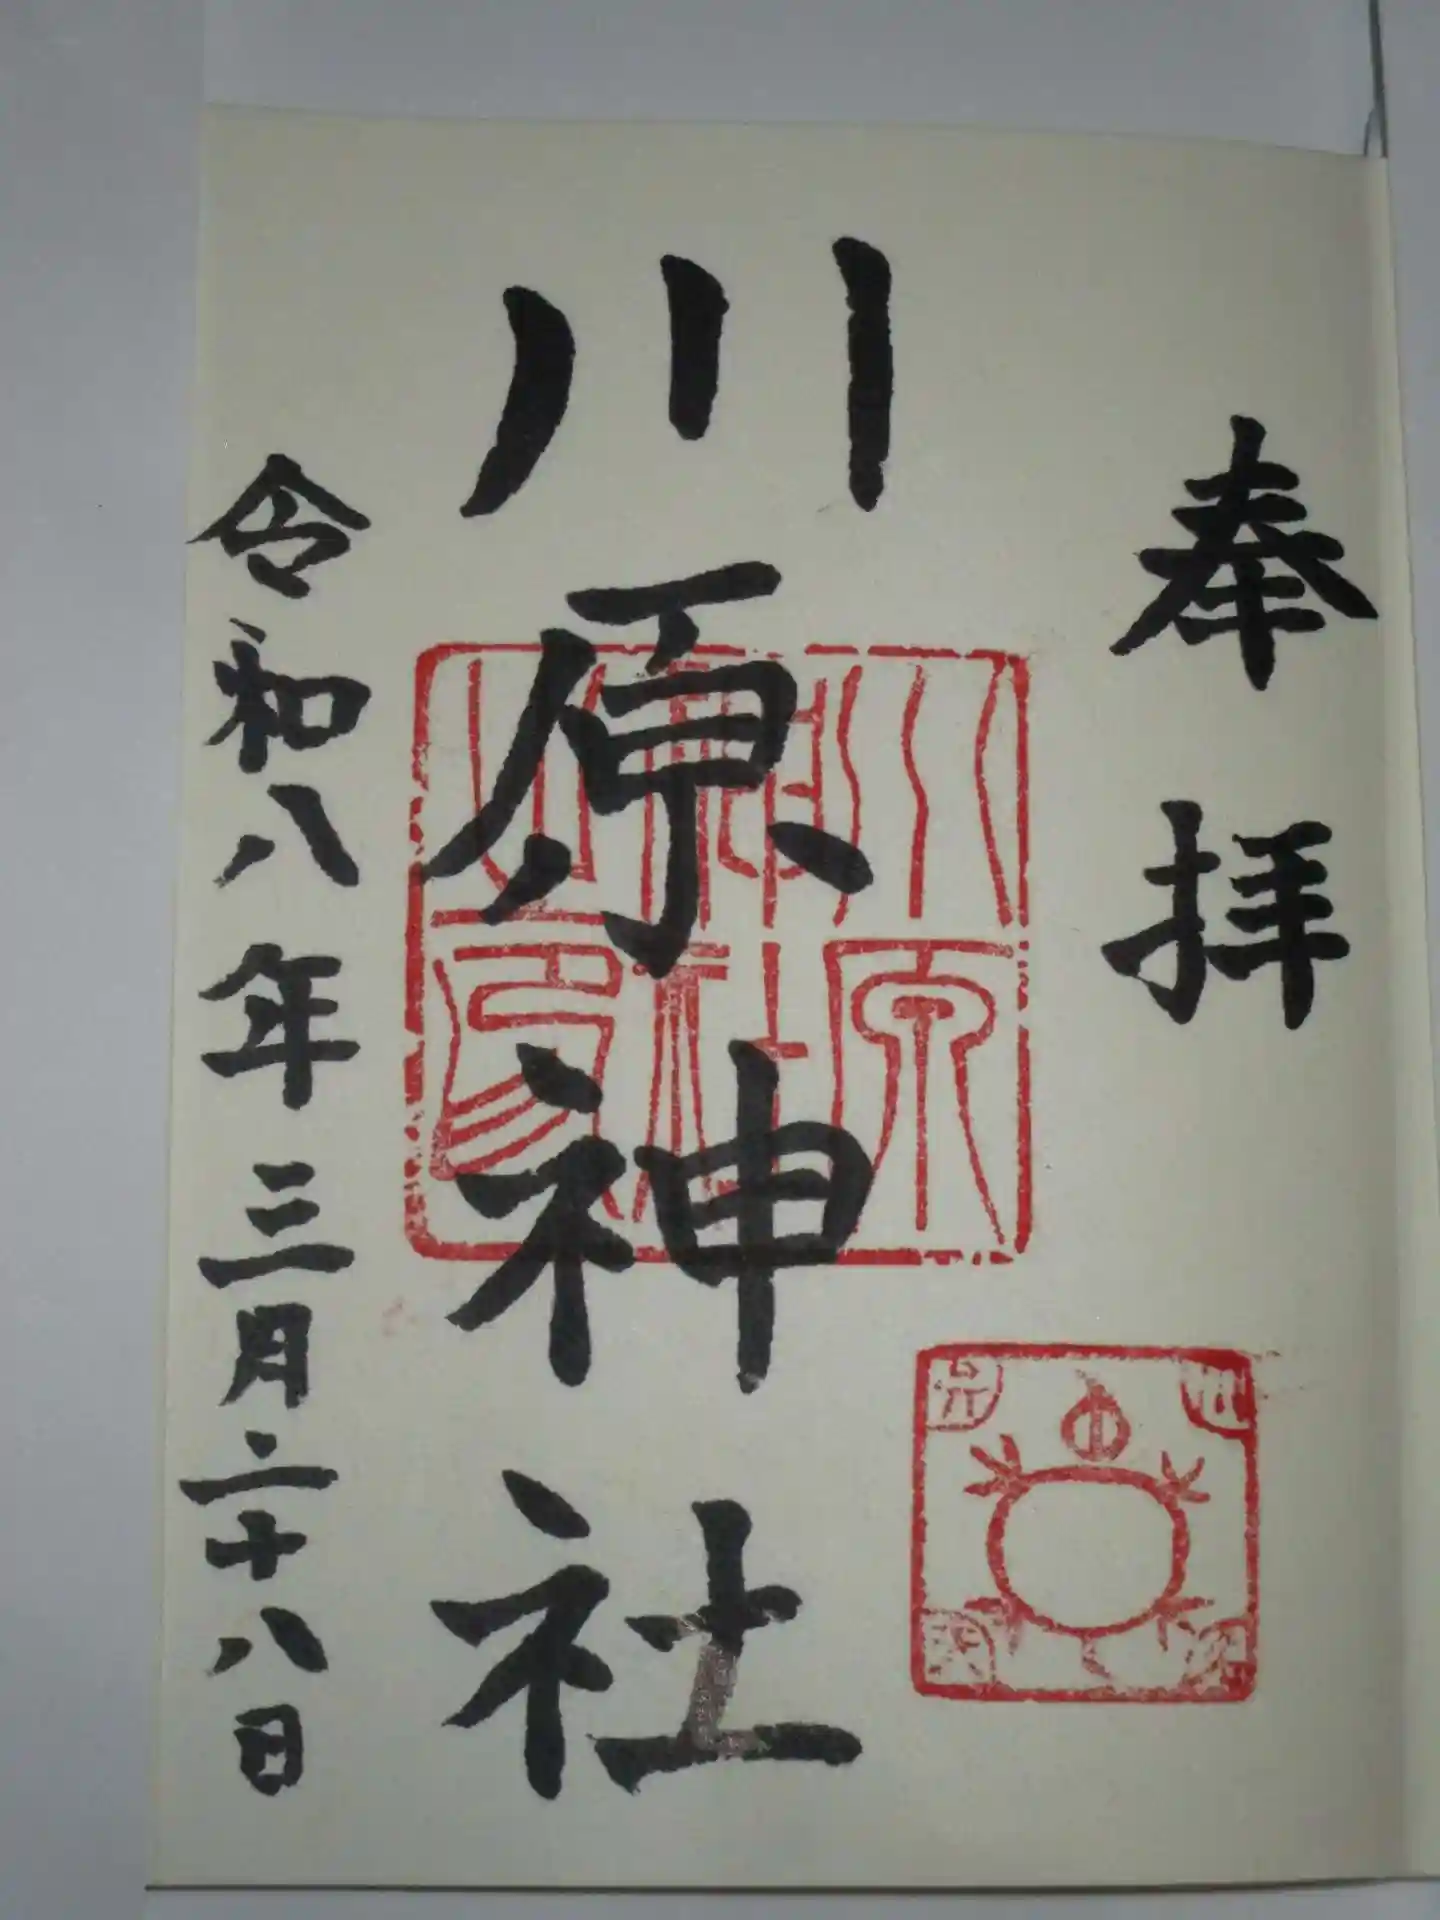 奉拝
川原神社
川原神社之印
令和八年三月二十八日